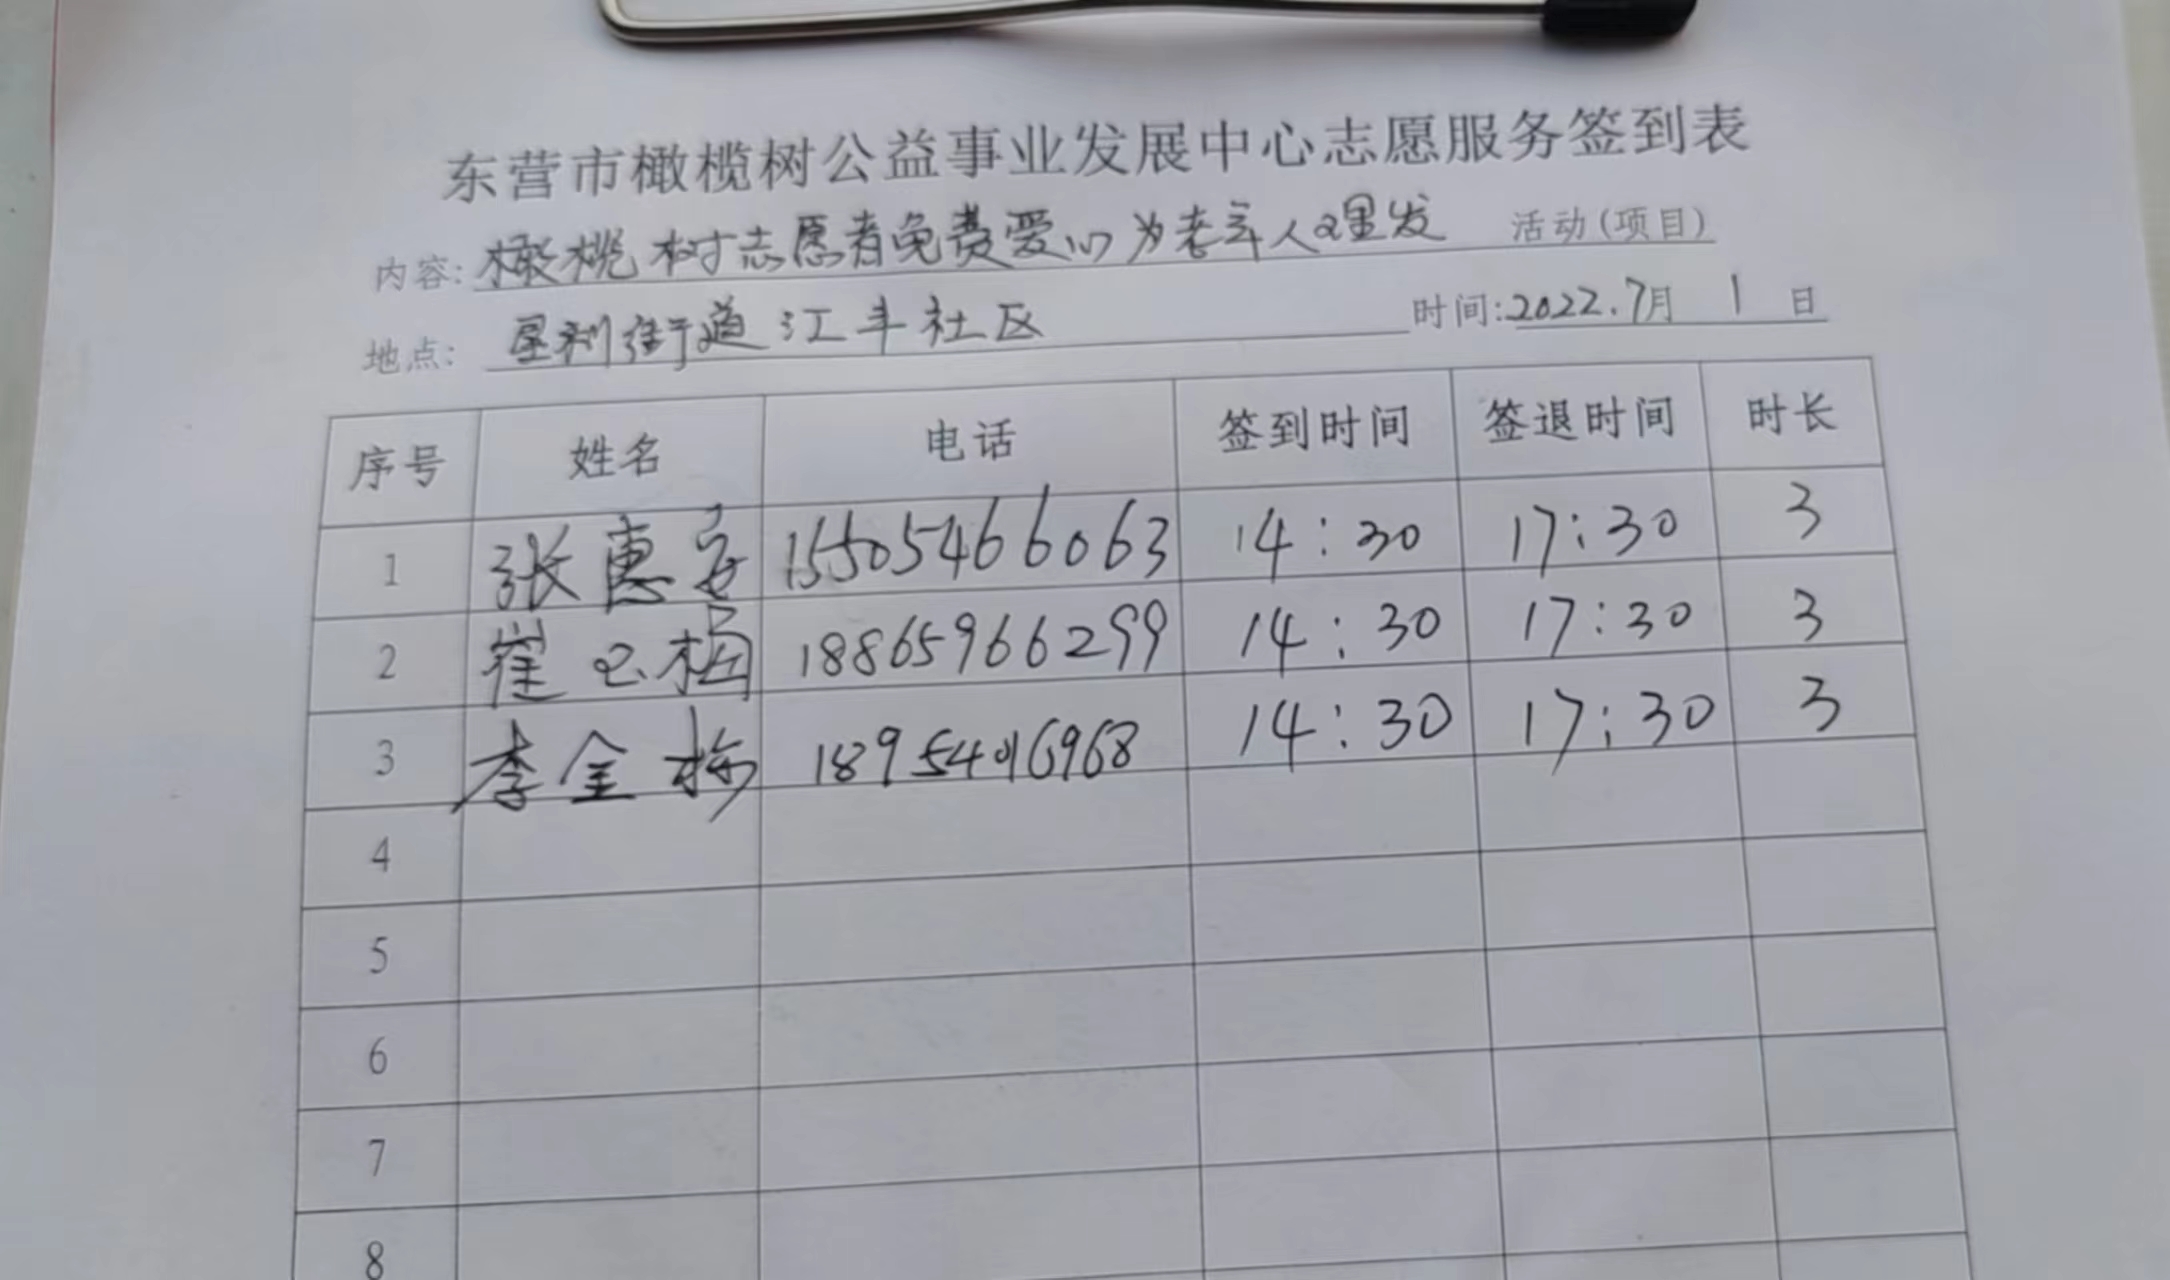 东营市橄榄树公益事业发展中心志愿服务签到表
内容: 橄榄树志愿者免费爱心为老年人理发 活动(项目)
地点: 垦利街道江丰社区 时间:2022.7月 1 日
序号 姓名 电话 签到时间 签退时间 时长
1 张惠 15505466063 14:30 17:30 3
2 崔玉梅 18865966299 14:30 17:30 3
3 李金梅 14:30 17:30 3
4
5
6
7
8